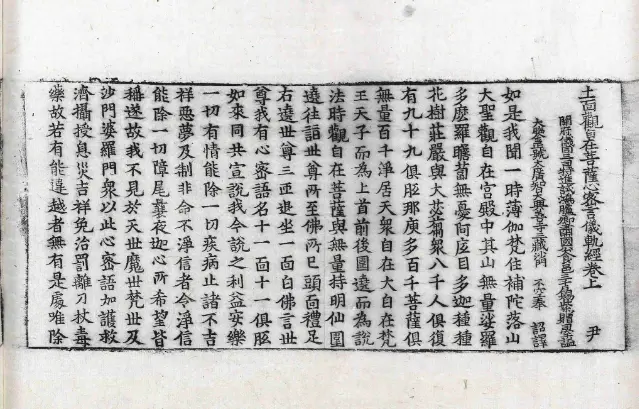 十一面觀自在菩薩心密言儀軌經卷上 尹
開府儀同三司特進試鴻臚卿肅國公食邑三千戶賜紫贈司空謚
大鑒正號大廣智大興善寺三藏沙門不空奉 詔譯
如是我聞一時薄伽梵住補陀落山
大聖觀自在宮殿中其山無量娑羅
多麼羅瞻蔔無憂阿底目多迦種種
花樹莊嚴與大苾芻衆八千人俱復
有九十九俱胝那庾多百千菩薩俱
無量百千淨居天衆自在大自在梵
王天子而為上首前後圍遶而為說
法時觀自在菩薩與無量持明仙圍
遶往詣世尊所至佛所已頭面禮足
右遶世尊三匝退坐一面白佛言世
尊我有心密語名十一面十一俱胝
如來同共宣說我今說之利益安樂
一切有情能除一切疾病止諸不吉
祥惡夢及制非命不淨信者令淨信
能除一切障尾曩夜迦心所希望皆
稱遂故我不見於天世魔世梵世及
沙門婆羅門衆以此心密語加護救
濟攝授息災吉祥免治罰離刀杖毒
藥故若有能違越者無有是處唯除